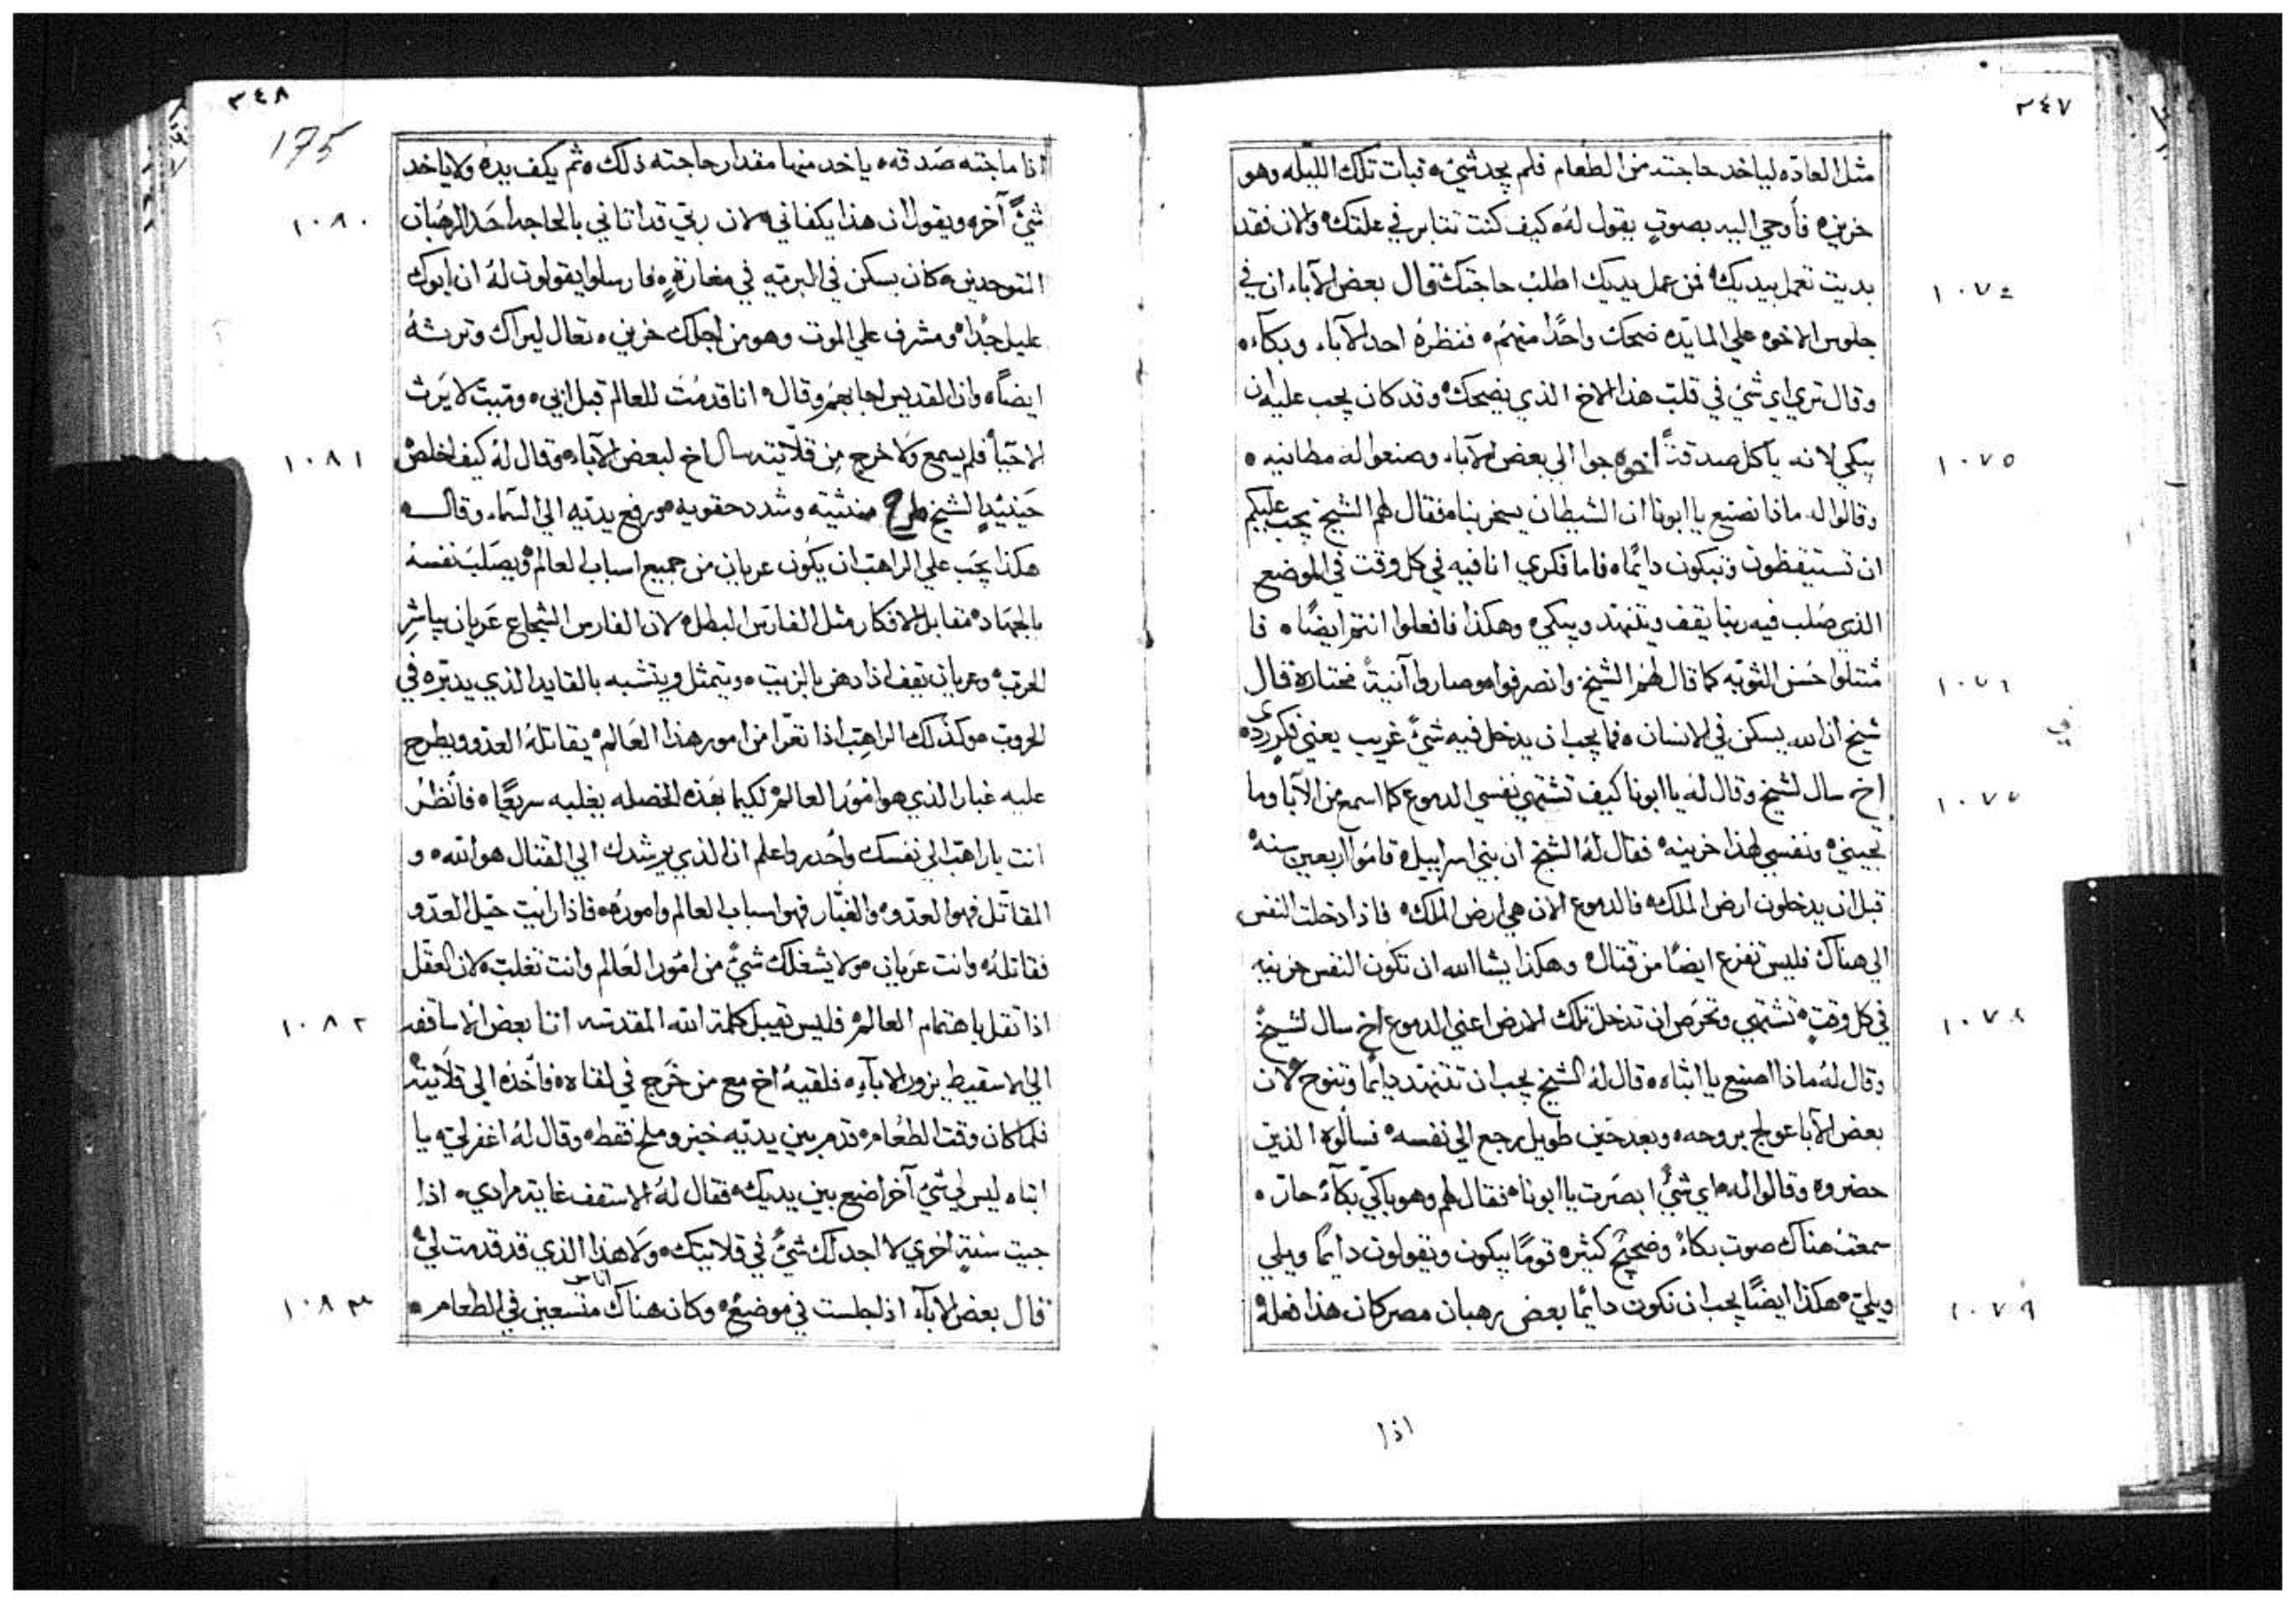 ٣٤٧
مثل العاده لياخد حاجته من الطعام فلم يجد شيء فبات تلك الليله وهو
حزين فأوحي اليه بصوتٍ يقول له كيف كنت تتابر في علتك والان فقد
١٠٧٤
بديت تعمل بيديك فمن عمل يديك اطلب حاجتك قال بعض الآباء ان في
جلوس الاخوه علي المايده ضحك واحدًا منهم فنظره احد الآباء وبكاء
وقال تري اي شيء في قلب هذا الاخ الذي يضحك وقد كان يجب عليه ان
١٠٧٥
يبكي لانه ياكل صدقةً اخوه جوا الي بعض الآباء وصنعوا له مطانيه
وقالوا له ماذا نصنع يا ابونا ان الشيطان يسخر بنا فقال لهم الشيخ يجب عليكم
ان تستيقظون وتبكون دايمًا فاما فكري انا فيه في كل وقت في الموضع
الذي صُلب فيه ربنا يقف ويتنهد ويبكي وهكذا فافعلوا انتم ايضًا فا
١٠٧٦
متتلوا حُسن التوبه كما قال لهم الشيخ وانصرفوا وصاروا آنيةً مختاره قال
شيخ ان الله يسكن في الانسان فما يجب ان يدخل فيه شيءً غريب يعني فكر ردي
١٠٧٧
اخ سال لشيخ وقال له يا ابونا كيف تشتهي نفسي الدموع كما اسمع من الآبا وما
تجيني ونفسي لهذا حزينه فقال له الشيخ ان بني اسراييل قاموا اربعين سنه
قبل ان يدخلون ارض الملك فالدموع الان هي ارض الملك فاذا دخلت النفس
الي هناك فليس تفزع ايضًا من قتال وهكذا يشا الله ان تكون النفس حزينه
١٠٧٨
في كل وقتٍ تشتهي وتحرص ان تدخل تلك الارض اعني الدموع اخ سال لشيخ
وقال له ماذا اصنع يا ابتاه قال له الشيخ يجب ان تتنهد دايمًا وتنوح لان
بعض الآبا عولج بروحه وبعد حين طويل رجع الي نفسه فسالوه الذين
حضروه وقالوا له اي شيءً ابصرت يا ابونا فقال لهم وهو باكي بكآءً حار
سمعت هناك صوت بكاءً وضجيج كثيره قومًا يبكون ويقولون دايمًا ويلي
١٠٧٩
ويلي هكذا ايضًا يجب ان نكون دايمًا بعض رهبان مصر كان هذا فعله
اذا
٣٤٨
175
اذا ماجته صدقه ياخد منها مقدار حاجته ذلك ثم يكف يده ولا ياخد
١٠٨٠
شيءً آخر ويقول ان هذا يكفاني لان ربي قد اتاني بالحاجه احد الرهبان
المتوحدين كان يسكن في البريه في مغارةٍ فارسلوا يقولون له ان ابوك
عليل جدًا ومشرف علي الموت وهو من اجلك حزين تعال ليراك وترثه
ايضًا وان القديس اجابهم وقال انا قد مُت للعالم قبل ابي وميت لا يرث
١٠٨١
لاحياً فلم يسمع ولا خرج من قلايته سال اخ لبعض الآباء وقال له كيف اخلص
حينيدٍ الشيخ طرح منثيته وشدد حقويه ورفع يديه الي السماء وقال
هكذا يجب علي الراهب ان يكون عريان من جميع اسباب العالم ويصلب نفسه
بالجهاد مقابل الافكار مثل الفارس البطل لان الفارس الشجاع عريان يباشر
الحرب وعريان يقف اذا دهن بالزيت ويتمثل ويتشبه بالقايد الذي يدبره في
الحروب وكذلك الراهب اذا تعرّا من امور هذا العالم يقاتله العدو ويطرح
عليه غبار الذي هو امُور العالم لكيما بهذه الخصله يغلبه سريعًا فأنظر
انت يا راهب الي نفسك وأحدر واعلم ان الذي يرشدك الي القتال هو الله و
المقاتل فهو العدو والغبار فهو اسباب العالم واموره فاذا رايت حيل العدو
فقاتله وانت عريان ولا يشغلك شيءً من امُور العالم وانت تغلب لان العقل
١٠٨٢
اذا تقل باهتمام العالم فليس تقيل كلمة الله المقدسه اتا بعض الاساقفه
الي الاسقيط يزور الابآء فلقيه اخ مع من خرج في لقاه فأخذه الي قلايته
فلما كان وقت الطعام قدم بين يديه خبز وملح فقط وقال له اغفر لي يا
ابتاه ليس لي شيءً آخر اضع بين يديك فقال له الاسقف غاية مرادي اذا
جيت سنةٍ اخري لا اجد لك شيءً في قلايتك ولا هذا الذي قد قدمت لي
١٠٨٣
قال بعض الابآء اذ جلست في موضعٍ وكان هناك اناس متسعين في الطعام